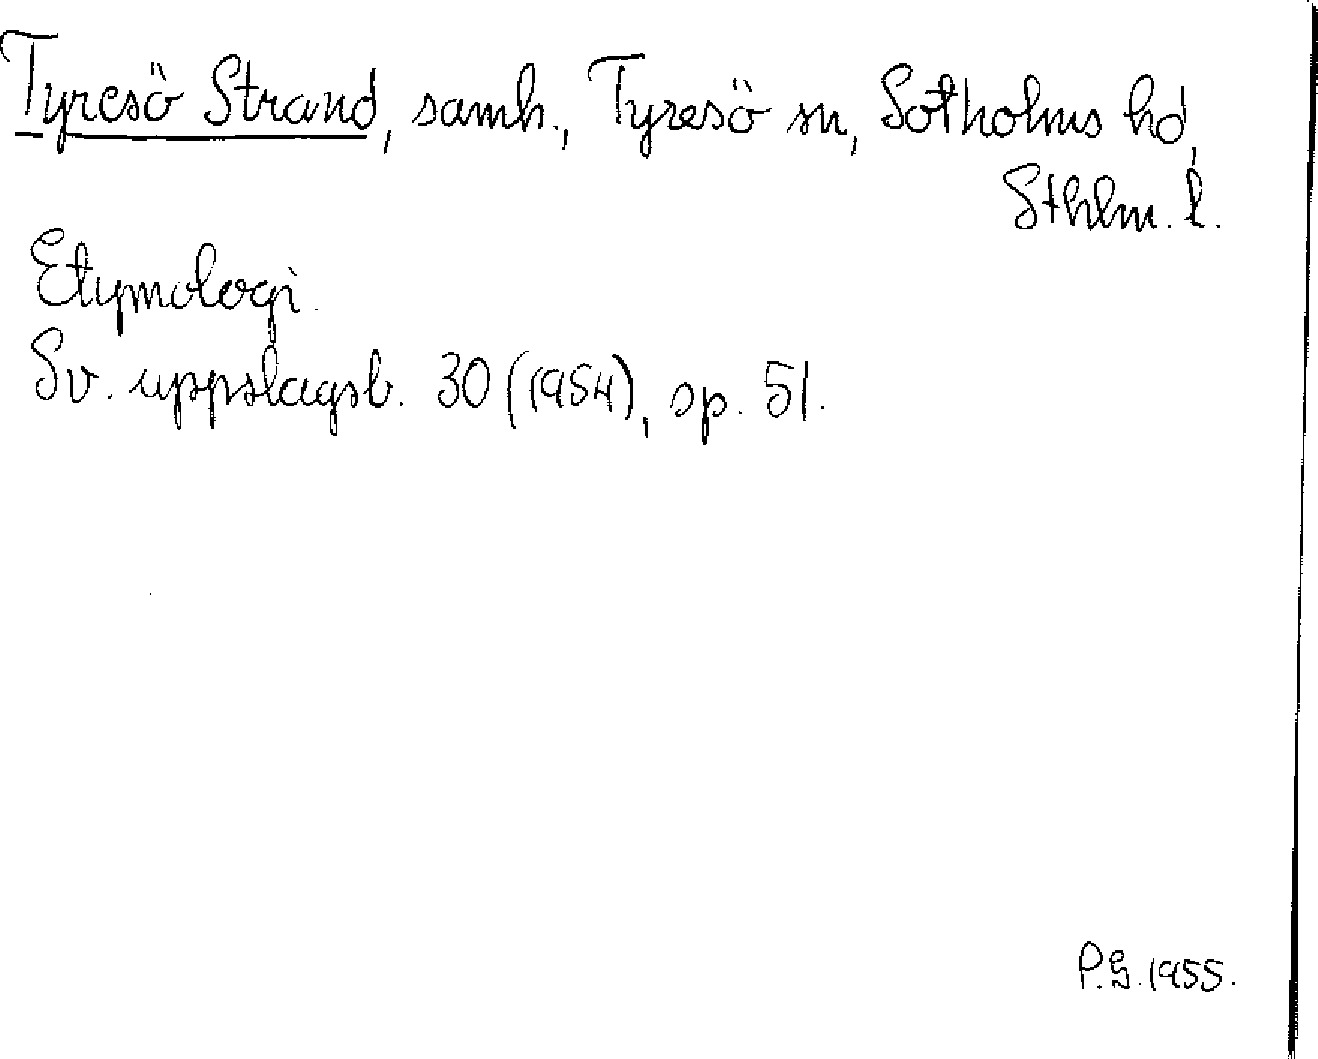 Tyresö Strand, samh., Tyresö sn, Sotholms hd,
Sthlm. l.
Etymologi.
Sv. uppslagsb. 30 (1954), sp. 51.
P.G. 1955.